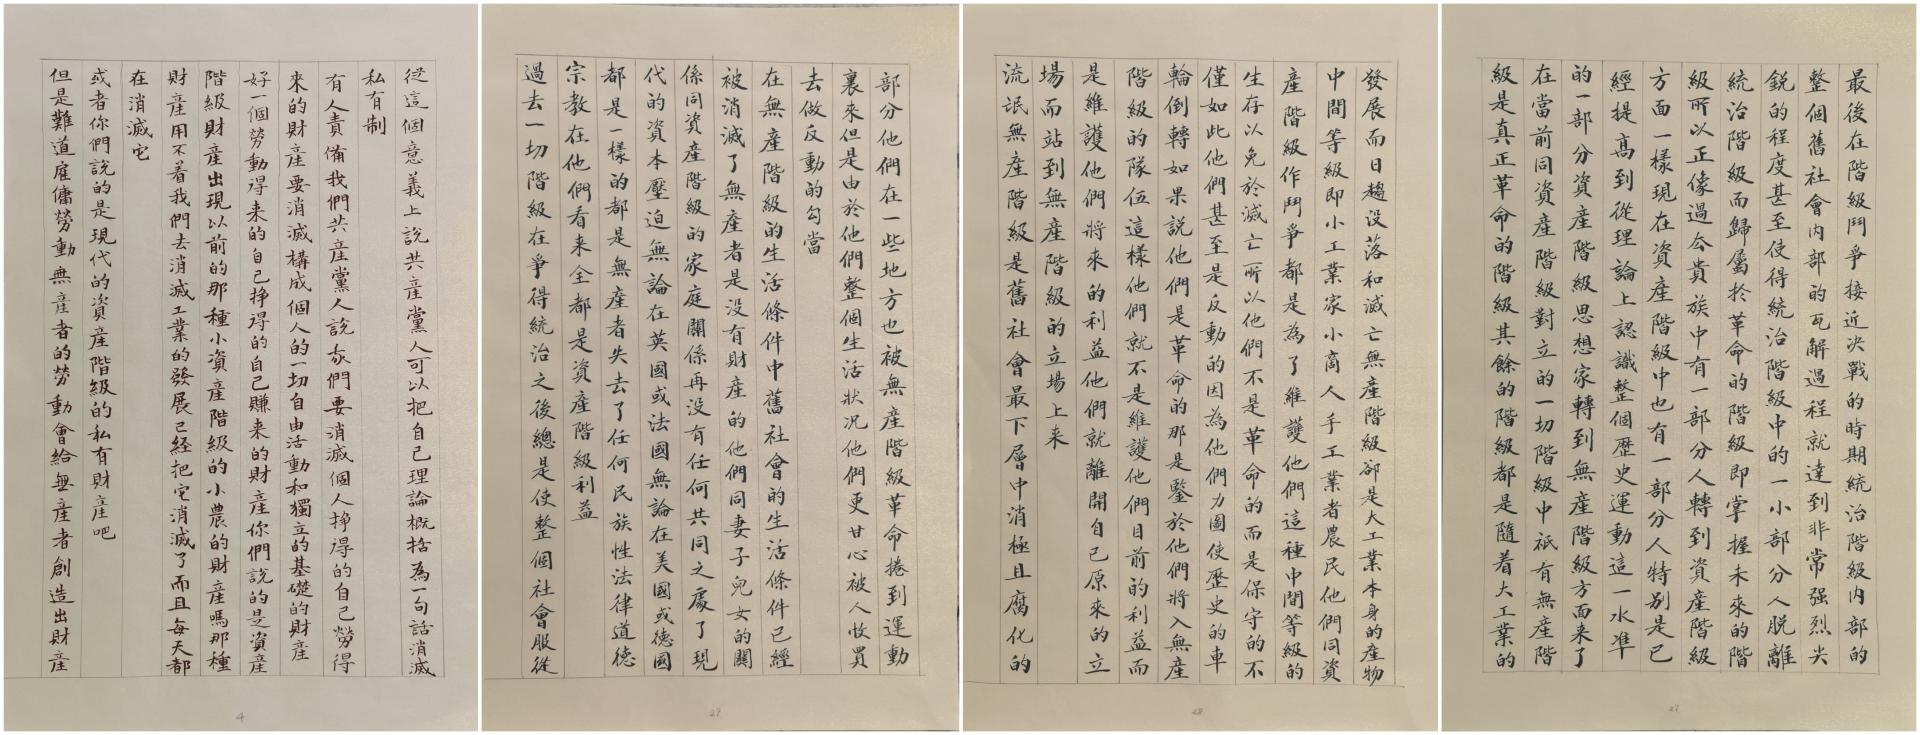 最後在階級鬥爭接近决戰的時期統治階級內部的
整個舊社會內部的瓦解過程就達到非常强烈尖
銳的程度甚至使得統治階級中的一小部分人脱離
統治階級而歸屬於革命的階級即掌握未來的階
級所以正像過去貴族中有一部分人轉到資產階級
方面一樣現在資產階級中也有一部分人特别是已
經提高到從理論上認識整個歷史運動這一水凖
的一部分資產階級思想家轉到無產階級方面来了
在當前同資產階級對立的一切階級中衹有無產階
級是真正革命的階級其餘的階級都是隨着大工業的
27
發展而日趨没落和滅亡無產階級卻是大工業本身的產物
中間等級即小工業家小商人手工業者農民他們同資
產階級作鬥爭都是為了維護他們這種中間等級的
生存以免於滅亡所以他們不是革命的而是保守的不
僅如此他們甚至是反動的因為他們力圖使歷史的車
輪倒轉如果説他們是革命的那是鑒於他們將入無產
階級的隊伍這樣他們就不是維護他們目前的利益而
是維護他們將来的利益他們就離開自己原來的立
場而站到無產階級的立場上来
流氓無產階級是舊社會最下層中消極且腐化的
28
部分他們在一些地方也被無產階級革命捲到運動
裏来但是由於他們整個生活狀况他們更甘心被人收買
去做反動的勾當
在無產階級的生活條件中舊社會的生活條件已經
被消滅了無產者是没有財產的他們同妻子兒女的關
係同資產階級的家庭關係再没有任何共同之處了現
代的資本壓迫無論在英國或法國無論在美國或德國
都是一樣的都是無產者失去了任何民族性法律道德
宗教在他們看来全都是資產階級利益
過去一切階級在爭得統治之後總是使整個社會服從
29
從這個意義上說共產黨人可以把自己理論概括為一句話消滅
私有制
有人責備我們共產黨人説我們要消滅個人挣得的自己勞得
來的財產要消滅構成個人的一切自由活動和獨立的基礎的財產
好一個勞動得来的自己挣得的自己賺来的財產你們説的是資產
階級財產出現以前的那種小資產階級的小農的財產嗎那種
財產用不着我們去消滅工業的發展已经把它消滅了而且每天都
在消滅它
或者你們說的是現代的資產階級的私有財產吧
但是難道雇傭勞動無產者的勞動會給無產者創造出財產
4